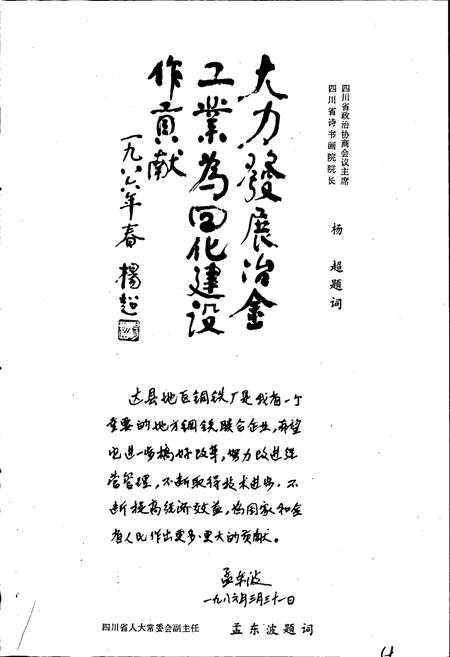 四川省政治协商会议主席
四川省诗书画院院长
杨超题词
大力發展冶金
工業為四化建設
作貢献
一九八六年春 楊超
达县地区钢铁厂是我省一个
重要的地方钢铁联合企业，希望
进一步搞好改革，努力改进经
营管理，不断取得技术进步，不
断提高经济效益，为国家和全
省人民作出更多更大的贡献。
孟东波
一九八六年三月三十一日
四川省人大常委会副主任 孟东波题词